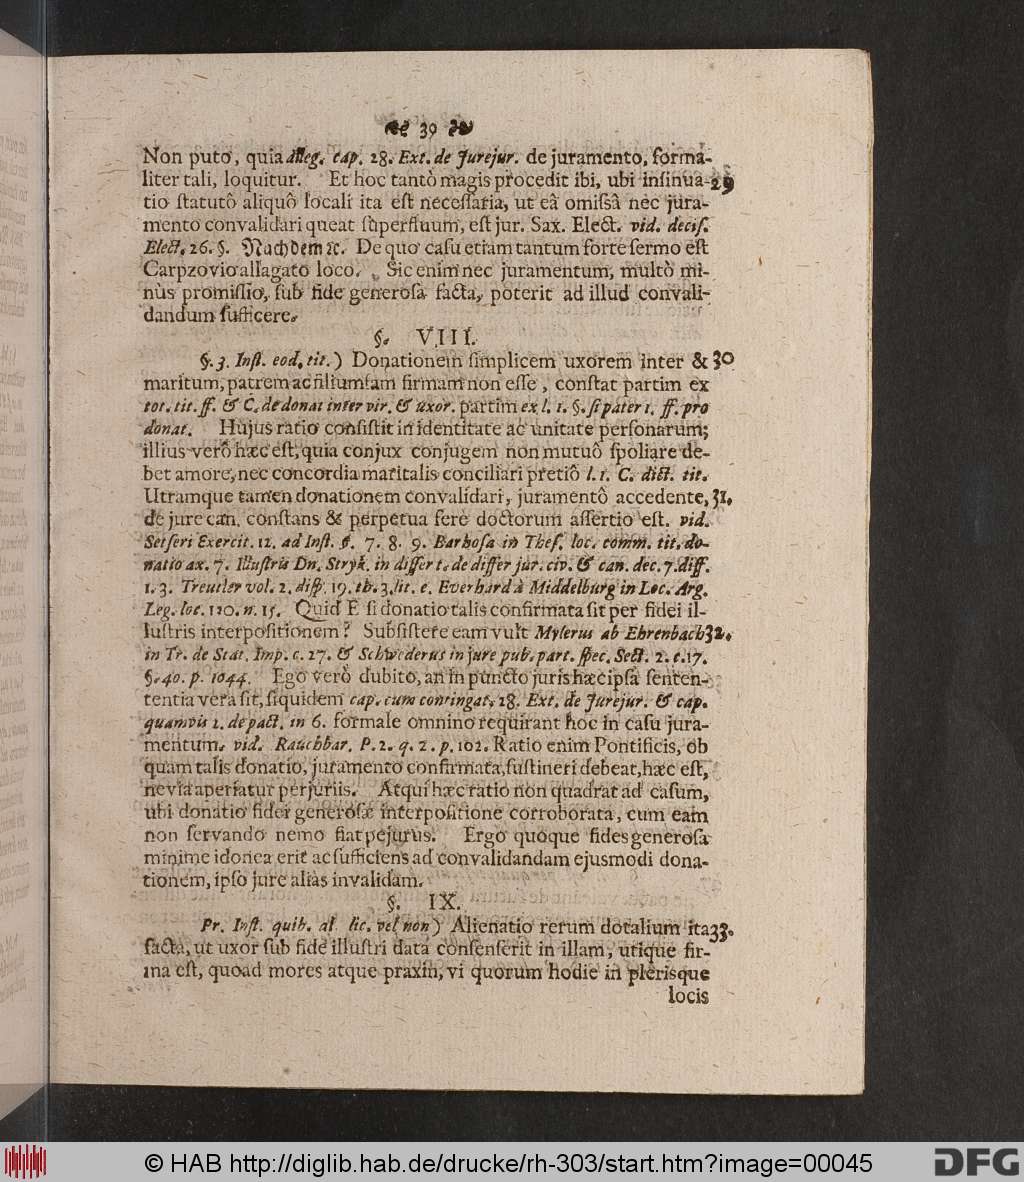 39
Non puto, quia alleg. cap. 28. Ext. de Jurejur. de juramento, forma-
liter tali, loquitur. Et hoc tantò magis procedit ibi, ubi insinua- 29
tio statutô aliquô locali ita est necessaria, ut eâ omissâ nec jura-
mento convalidari queat superfluum, est jur. Sax. Elect. vid. decis.
Elect. 26. §. Nachdem ꝛc. De quo casu etiam tantum forte sermo est
Carpzovio allagato loco. Sic enim nec juramentum, multò mi-
nùs promissio, sub fide generosa facta, poterit ad illud convali-
dandum sufficere.
§. VIII.
§. 3. Inst. eod. tit.) Donationem simplicem uxorem inter & 30
maritum, patrem ac filiumfam firmam non esse, constat partim ex
tot. tit. ff. & C. de donat inter vir. & uxor. partim ex l. 1. §. si pater 1. ff. pro
donat. Hujus ratio consistit in identitate ac unitate personarum;
illius verò hæc est, quia conjux conjugem non mutuô spoliare de-
bet amore, nec concordia maritalis conciliari pretiô l. 1. C. dict. tit.
Utramque tamen donationem convalidari, juramentô accedente, 31.
de jure can. constans & perpetua fere doctorum assertio est. vid.
Setseri Exercit. 12. ad Inst. §. 7. 8. 9. Barbosa in Thes. loc. comm. tit. do-
natio ax. 7. Illustris Dn. Stryk. in differt. de differ jur. civ. & can. dec. 7. diff.
1. 3. Treutler vol. 2. disp. 19. th. 3. lit. e. Everhard à Middelburg in Loc. Arg.
Leg. loc. 110. n. 15. Quid E si donatio talis confirmata sit per fidei il-
lustris interpositionem? Subsistere eam vult Mylerus ab Ehrenbach 32.
in Tr. de Stat. Imp. c. 27. & Schwederus in jure pub. part. spec. Sect. 2. c. 17.
§. 40. p. 1044. Ego verò dubito, an in puncto juris hæc ipsa senten-
tentia vera sit, siquidem cap. cum contingat. 28. Ext. de Jurejur. & cap.
quamvis 2. de pact. in 6. formale omnino requirant hoc in casu jura-
mentum. vid. Rauchbar. P. 2. q. 2. p. 102. Ratio enim Pontificis, ob
quam talis donatio, juramento confirmata, sustineri debeat, hæc est,
ne via aperiatur perjuriis. Atqui hæc ratio non quadrat ad casum,
ubi donatio fidei generosæ interpositione corroborata, cum eam
non servando nemo fiat pejurus. Ergo quoque fides generosa
minime idonea erit ac sufficiens ad convalidandam ejusmodi dona-
tionem, ipso jure alias invalidam.
§. IX.
Pr. Inst. quib. al. lic. vel non) Alienatio rerum dotalium ita 33.
facta, ut uxor sub fide illustri data consenserit in illam, utique fir-
ma est, quoad mores atque praxin, vi quorum hodie in plerisque
locis
© HAB http://diglib.hab.de/drucke/rh-303/start.htm?image=00045
DFG